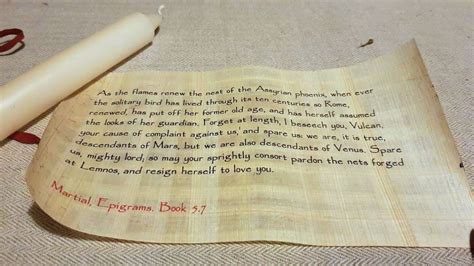 As the flames renew the nest of the Assyrian phoenix, when ever
the solitary bird has lived through its ten centuries so Rome,
renewed, has put off her former old age, and has herself assumed
the looks of her guardian. Forget at length, I beseech you, Vulcan,
your cause of complaint against us, and spare us: we are, it is true,
descendants of Mars, but we are also descendants of Venus. Spare
us, mighty lord; so may your sprightly consort pardon the nets forged
at Lemnos, and resign herself to love you.
Martial, Epigrams. Book 5.7